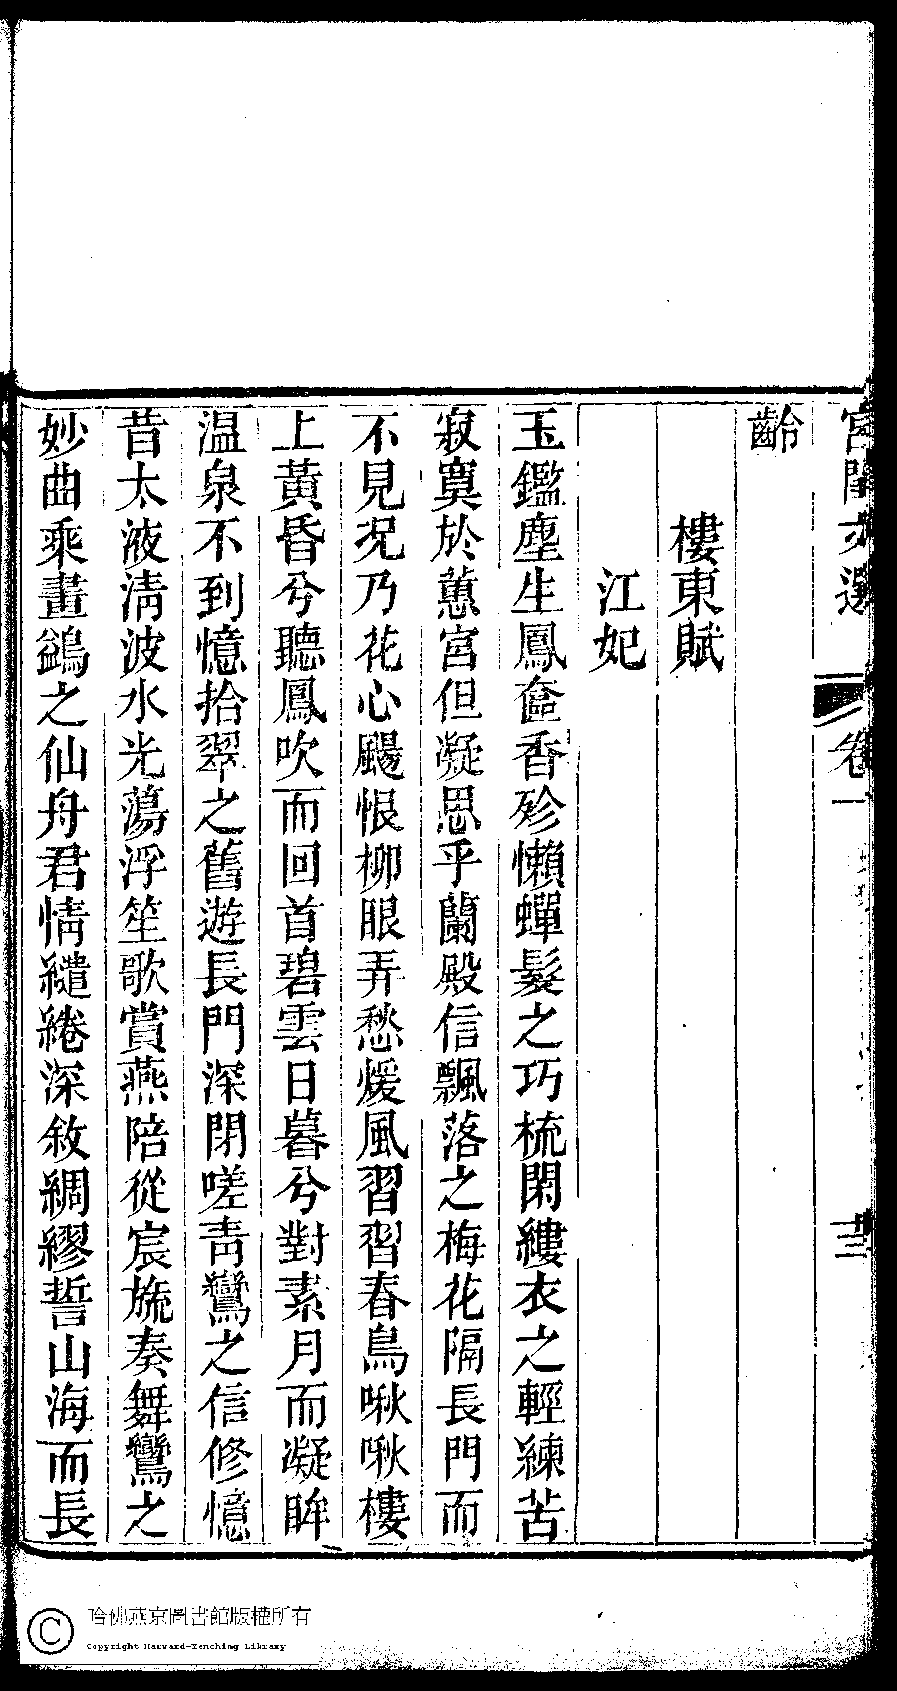 宮閨文選 卷一 十三
齡
樓東賦
江妃
玉鑑塵生鳳奩香殄懶蟬鬂之巧梳閑縷衣之輕練苦
寂寞於蕙宮但凝思乎蘭殿信飄落之梅花隔長門而
不見况乃花心颺恨柳眼弄愁煖風習習春鳥啾啾樓
上黃昏兮聽鳳吹而回首碧雲日暮兮對素月而凝眸
温泉不到憶拾翠之舊遊長門深閉嗟青鸞之信修憶
昔太液清波水光蕩浮笙歌賞燕陪從宸旒奏舞鸞之
妙曲乘畫鷁之仙舟君情繾綣深敘綢繆誓山海而長
哈佛燕京圖書館版權所有
Copyright Harvard-Yenching Library